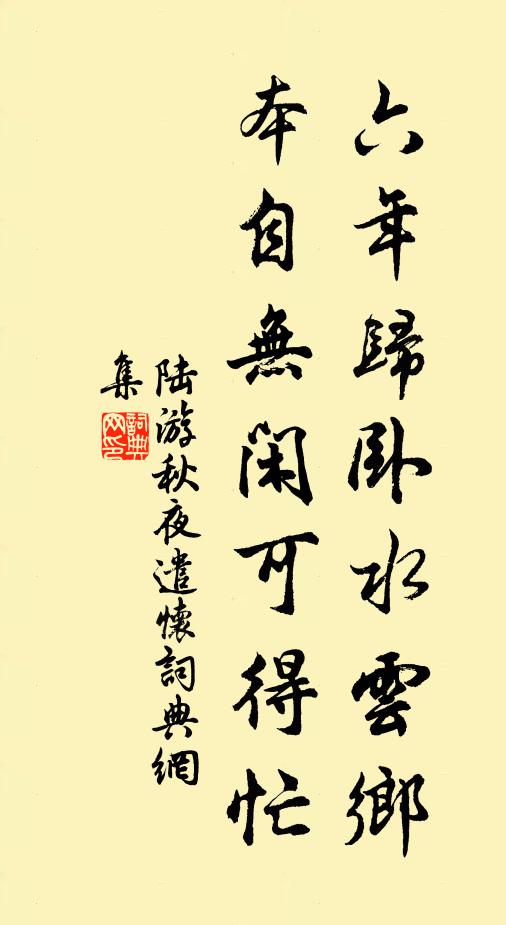 六年歸卧水雲鄉
本自無閑可得忙
陸游秋夜遣懷詞典網
集
詞典
网印